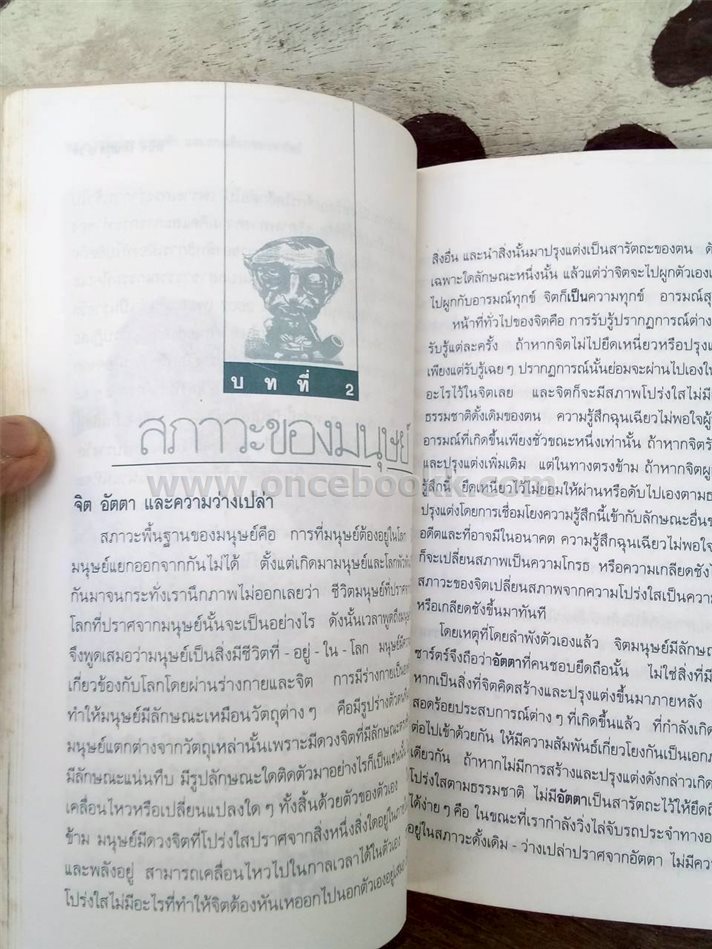 บทที่ 2
สภาวะของมนุษย์
www.oncebookk.com
จิต อัตตา และความว่างเปล่า
สภาวะพื้นฐานของมนุษย์คือ การที่มนุษย์ต้องอยู่ในโลก
มนุษย์แยกออกจากกันไม่ได้ ตั้งแต่เกิดมามนุษย์และโลกพัวพัน
กันมาจนกระทั่งเรานึกภาพไม่ออกเลยว่า ชีวิตมนุษย์ที่ปราศจาก
โลกที่ปราศจากมนุษย์นั้นจะเป็นอย่างไร ดังนั้นเวลาพูดถึงมนุษย์
จึงพูดเสมอว่ามนุษย์เป็นสิ่งมีชีวิตที่ - อยู่ - ใน - โลก มนุษย์มีความ
เกี่ยวข้องกับโลกโดยผ่านร่างกายและจิต การมีร่างกายเป็น
ทำให้มนุษย์มีลักษณะเหมือนวัตถุต่างๆ คือมีรูปร่างตัวตน
มนุษย์แตกต่างจากวัตถุเหล่านั้นเพราะมีดวงจิตที่มีลักษณะ
มีลักษณะแน่นทึบ มีรูปลักษณะใดติดตัวมาอย่างไรก็เป็นเช่นนั้น
เคลื่อนไหวหรือเปลี่ยนแปลงใดๆ ทั้งสิ้นด้วยตัวของตัวเอง
ข้าม มนุษย์มีดวงจิตที่โปร่งใสปราศจากสิ่งหนึ่งสิ่งใดอยู่ภายใน
และพลังอยู่ สามารถเคลื่อนไหวไปในกาลเวลาได้ในตัวเอง
โปร่งใสไม่มีอะไรที่ทำให้จิตต้องหันเหออกไปนอกตัวเองอยู่เสมอ
สิ่งอื่น และนำสิ่งนั้นมาปรุงแต่งเป็นสารัตถะของตน
เฉพาะใดลักษณะหนึ่งนั้น แล้วแต่ว่าจิตจะไปผูกตัวเอง
ไปผูกกับอารมณ์ทุกข์ จิตก็เป็นความทุกข์ อารมณ์
หน้าที่ทั่วไปของจิตคือ การรับรู้ปรากฏการณ์ต่าง
รับรู้แต่ละครั้ง ถ้าหากจิตไม่ไปยึดเหนี่ยวหรือปรุง
เพียงแต่รับรู้เฉยๆ ปรากฏการณ์นั้นย่อมจะผ่านไปเอง
อะไรไว้ในจิตเลย และจิตก็จะมีสภาพโปร่งใสไม่มี
ธรรมชาติดั้งเดิมของตน ความรู้สึกฉุนเฉียวไม่พอใจ
อารมณ์ที่เกิดขึ้นเพียงชั่วขณะหนึ่งเท่านั้น ถ้าหากจิต
และปรุงแต่งเพิ่มเติม แต่ในทางตรงข้าม ถ้าหากจิต
รู้สึกนี้ ยึดเหนี่ยวไว้ไม่ยอมให้ผ่านหรือดับไปเองตาม
ปรุงแต่งโดยการเชื่อมโยงความรู้สึกนี้เข้ากับลักษณะอื่น
อดีตและที่อาจมีในอนาคต ความรู้สึกฉุนเฉียวไม่พอใจ
ก็จะเปลี่ยนสภาพเป็นความโกรธ หรือความเกลียดชัง
สภาวะของจิตเปลี่ยนสภาพจากความโปร่งใสเป็นความ
หรือเกลียดชังขึ้นมาทันที
โดยเหตุที่โดยลำพังตัวเองแล้ว จิตมนุษย์มีลักษณะ
ซาร์ตร์จึงถือว่าอัตตาที่คนชอบยึดถือนั้น ไม่ใช่สิ่งที่มี
หากเป็นสิ่งที่จิตคิดสร้างและปรุงแต่งขึ้นมาภายหลัง
สอดร้อยประสบการณ์ต่างๆ ที่เกิดขึ้นแล้ว ที่กำลังเกิด
ต่อไปเข้าด้วยกัน ให้มีความสัมพันธ์เกี่ยวโยงกันเป็นเอก
เดียวกัน ถ้าหากไม่มีการสร้างและปรุงแต่งดังกล่าว
โปร่งใสตามธรรมชาติ ไม่มีอัตตาเป็นสารัตถะไว้ให้ยึด
ได้ง่ายๆ คือ ในขณะที่เรากำลังวิ่งไล่จับรถประจำทาง
อยู่ในสภาวะดั้งเดิม - ว่างเปล่าปราศจากอัตตา ไม่มี